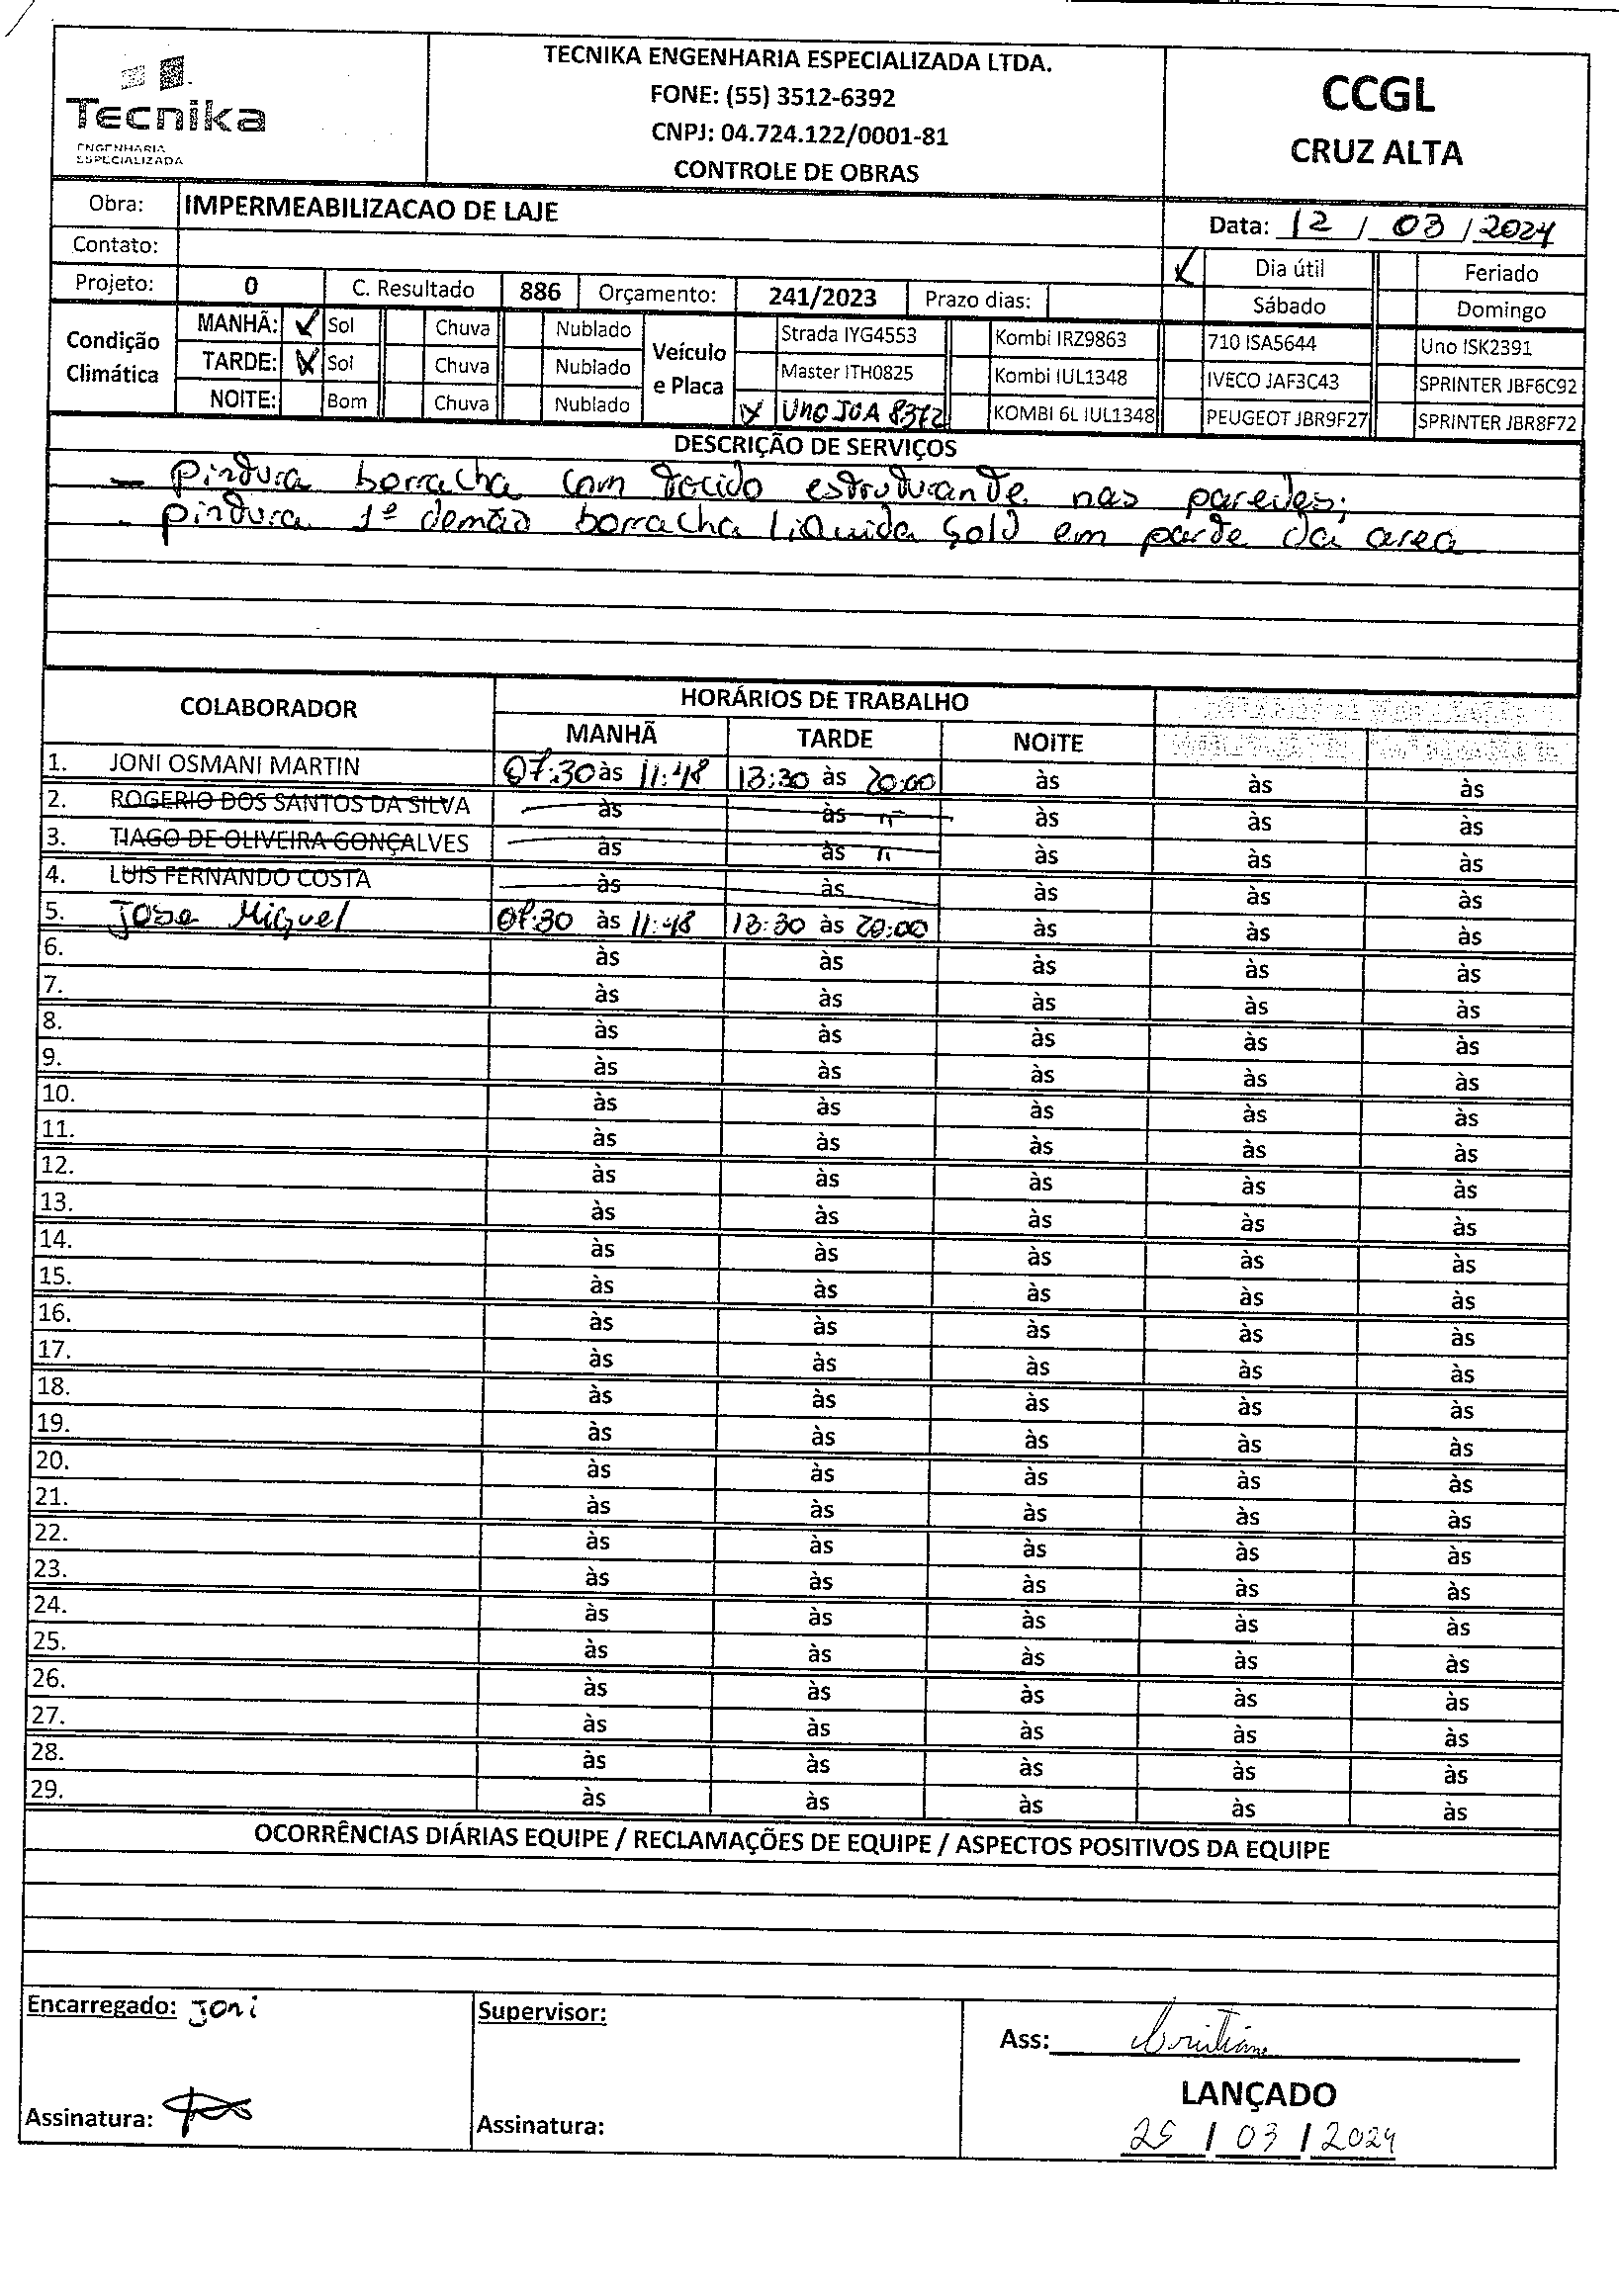 Tecnika
ENGENHARIA
ESPECIALIZADA
TECNIKA ENGENHARIA ESPECIALIZADA LTDA.
FONE: (55) 3512-6392
CNPJ: 04.724.122/0001-81
CONTROLE DE OBRAS
CCGL
CRUZ ALTA
Obra: IMPERMEABILIZACAO DE LAJE
Data: 12 / 03 / 2024
Contato:
Dia útil Feriado
Projeto: 0 C. Resultado 886 Orçamento: 241/2023 Prazo dias:
Sábado Domingo
Condição Climática
MANHÃ: Sol Chuva Nublado
TARDE: Sol Chuva Nublado
NOITE: Bom Chuva Nublado
Veículo e Placa
Strada IYG4553 Kombi IRZ9863 710 ISA5644 Uno ISK2391
Master ITH0825 Kombi IUL1348 IVECO JAF3C43 SPRINTER JBF6C92
Uno JOA 8372 KOMBI 6L IUL1348 PEUGEOT JBR9F27 SPRINTER JBR8F72
DESCRIÇÃO DE SERVIÇOS
- pintura borracha com tecido estruturante nas paredes;
- pintura 1ª demão borracha liquida Gold em parte da area
COLABORADOR HORÁRIOS DE TRABALHO
MANHÃ TARDE NOITE
1. JONI OSMANI MARTIN 07:30 às 11:48 13:30 às 20:00 às às às
2. ROGERIO DOS SANTOS DA SILVA às às às às às
3. TIAGO DE OLIVEIRA GONÇALVES às às às às às
4. LUIS FERNANDO COSTA às às às às às
5. Jose Miguel 07:30 às 11:48 13:30 às 20:00 às às às
6. às às às às às
7. às às às às às
8. às às às às às
9. às às às às às
10. às às às às às
11. às às às às às
12. às às às às às
13. às às às às às
14. às às às às às
15. às às às às às
16. às às às às às
17. às às às às às
18. às às às às às
19. às às às às às
20. às às às às às
21. às às às às às
22. às às às às às
23. às às às às às
24. às às às às às
25. às às às às às
26. às às às às às
27. às às às às às
28. às às às às às
29. às às às às às
OCORRÊNCIAS DIÁRIAS EQUIPE / RECLAMAÇÕES DE EQUIPE / ASPECTOS POSITIVOS DA EQUIPE
Encarregado: Joni
Supervisor:
Ass: Cristiane
LANÇADO
Assinatura:
Assinatura:
25 / 03 / 2024